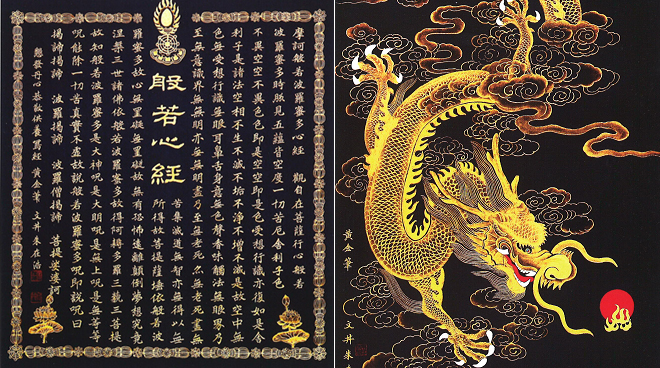 般若心經
摩訶般若波羅蜜多心經 觀自在菩薩行心般若
波羅蜜多時照見五蘊皆空度一切苦厄舍利子色
不異空空不異色色即是空空即是色受想行識亦復如是舍
利子是諸法空相不生不滅不垢不淨不增不減是故空中無
色無受想行識無眼耳鼻舌身意無色聲香味觸法無眼界乃
至無意識界無無明亦無無明盡乃至無老死亦無老死盡無
苦集滅道無智亦無得以無
所得故菩提薩埵依般若波
羅蜜多故心無罣礙無罣礙故無有恐怖遠離顛倒夢想究竟
涅槃三世諸佛依般若波羅蜜多故得阿耨多羅三藐三菩提
故知般若波羅蜜多是大神呪是大明呪是無上呪是無等等
呪能除一切苦真實不虛故說般若波羅蜜多呪即說呪曰
揭諦揭諦 波羅揭諦 波羅僧揭諦 菩提娑婆訶
發丹心 敬供養寫經 黃金筆 文井 朱在
黃金筆 文井 朱